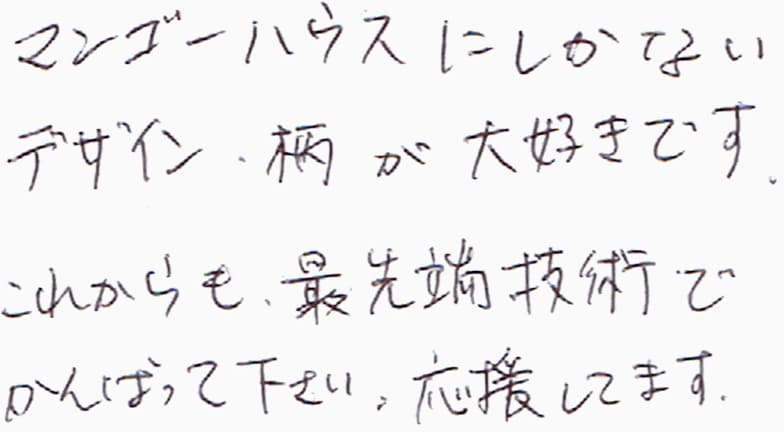 マンゴーハウスにしかない
デザイン、柄が大好きです。
これからも、最先端技術で
がんばって下さい。応援してます。